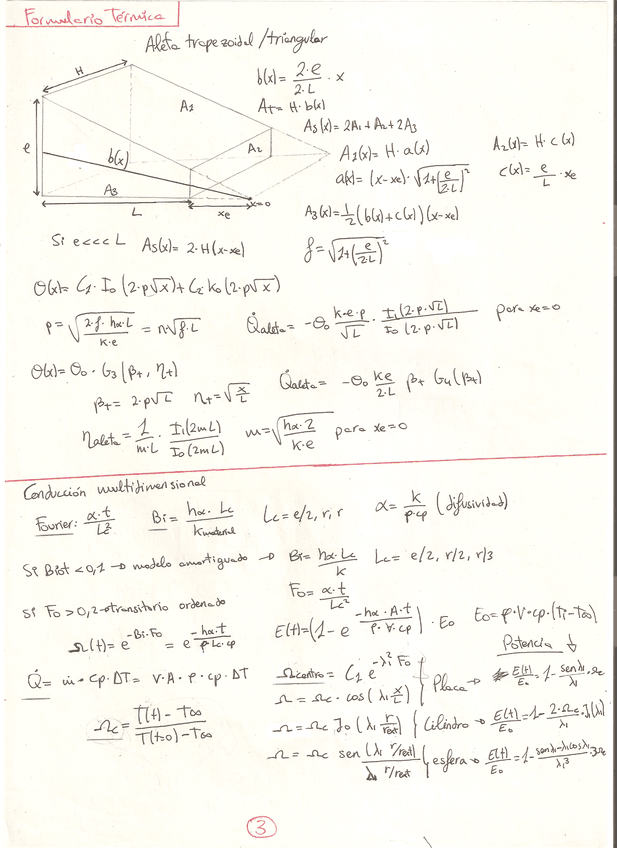 Formulario Térmica
Aleta trapezoidal/triangular
b(x) = 2·e/2·L · x
At = H·b(x)
As(x) = 2A1 + A2 + 2A3
A1(x) = H·a(x)
A2(x) = H·c(x)
a(x) = (x-xe)·√(1+(e/2·L)²)
c(x) = e/L · xe
A3(x) = 1/2 (b(x)+c(x))(x-xe)
H
A1
A2
e
b(x)
A3
x=0
L
xe
Si e<<<L As(x) = 2·H(x-xe)
f = √(1+(e/2·L)²)
θ(x) = C1·I0(2·p√x) + C2·k0(2·p√x)
p = √(2·f·hα·L/k·e) = n√f·L
Q̇aleta = -θ0 k·e·p/√L · I1(2·p·√L)/I0(2·p·√L) para xe=0
θ(x) = θ0·G3(β+, η+)
β+ = 2·p√L η+ = √(x/L)
Q̇aleta = -θ0 ke/2·L β+ G4(β+)
ηaleta = 1/m·L · I1(2mL)/I0(2mL) m = √(hα·2/k·e) para xe=0
Conducción multidimensional
Fourier: α·t/Lc² Bi = hα·Lc/kmaterial Lc = e/2, r, r α = k/ρ·cp (difusividad)
Si Biot < 0,1 → modelo amortiguado → Bi = hα·Lc/k Lc = e/2, r/2, r/3
Fo = α·t/Lc²
Si Fo > 0,2 → transitorio ordenado
E(t) = (1 - e^(-hα·A·t/ρ·V·cp))·E0 E0 = ρ·V·cp·(Ti-T∞)
Ω(t) = e^(-Bi·Fo) = e^(-hα·t/ρ·Lc·cp)
Potencia ↓
Q̇ = ṁ·cp·ΔT = v·A·ρ·cp·ΔT
Ωcentro = C1 e^(-λ1² Fo)
Ω = Ωc·cos(λ1 x/L)
Placa → E(t)/E0 = 1 - senλ1/λ1 · Ωc
Ωc = T(t) - T∞/T(t=0) - T∞
Ω = Ωc J0(λ1 r/rext) Cilindro → E(t)/E0 = 1 - 2·Ωc/λ1 · J1(λ1)
Ω = Ωc sen(λ1 r/rext)/λ1 r/rext esfera → E(t)/E0 = 1 - senλ1-λ1cosλ1/λ1³ · 3Ωc
3